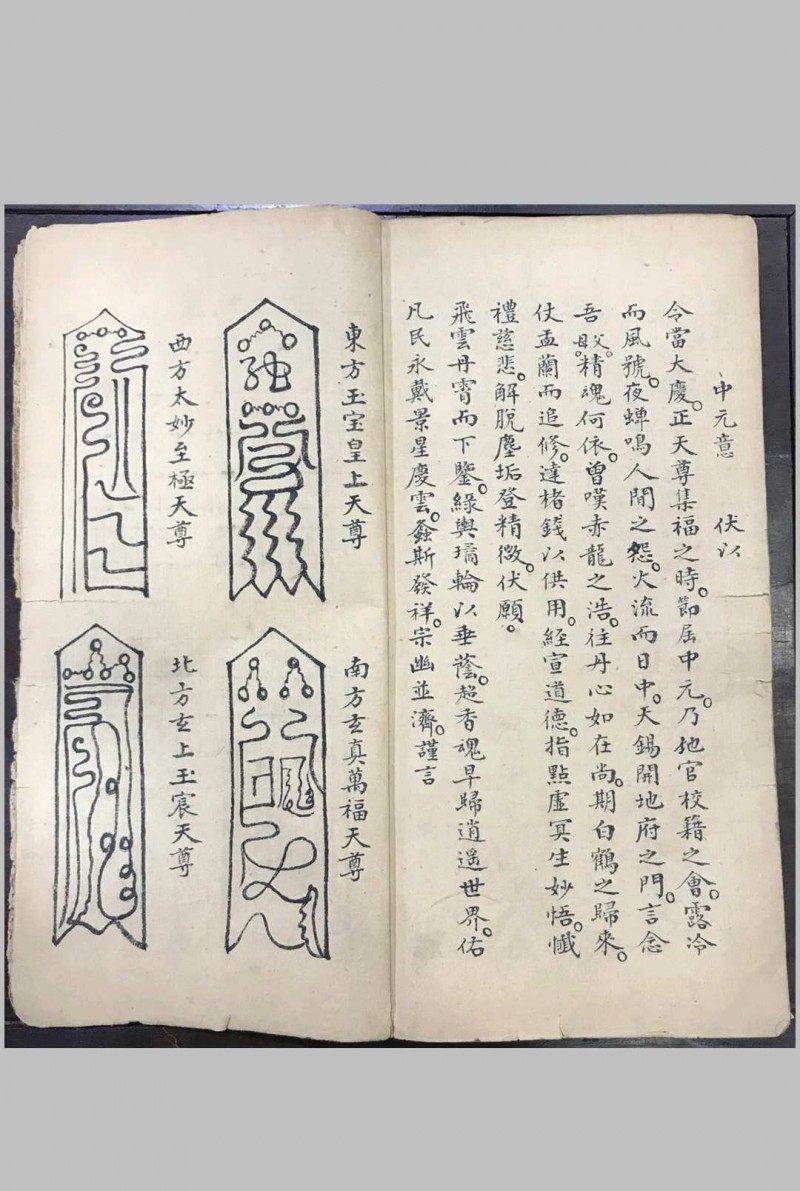 中元意 伏以
令當大慶。正天尊集福之時。節屆中元。乃地官校籍之會。露冷
而風號。夜蟬鳴人間之怨。火流而日中。天錫開地府之門。言念
吾父母。精魂何依。曾嘆赤龍之浩。往丹心如在。尚期白鶴之歸來。
仗盂蘭而追修。達楮錢以供用。經宣道德。指點虛冥生妙悟。懺
禮慈悲。解脫塵垢登精微。伏願。
飛雲丹霄而下鑒。綠輿璚輪以垂蔭。超香魂早歸逍遙世界。佑
凡民永戴景星慶雲。螽斯發祥。宗幽並濟。謹言
東方玉宝皇上天尊
南方玄真萬福天尊
西方太妙至極天尊
北方玄上玉宸天尊